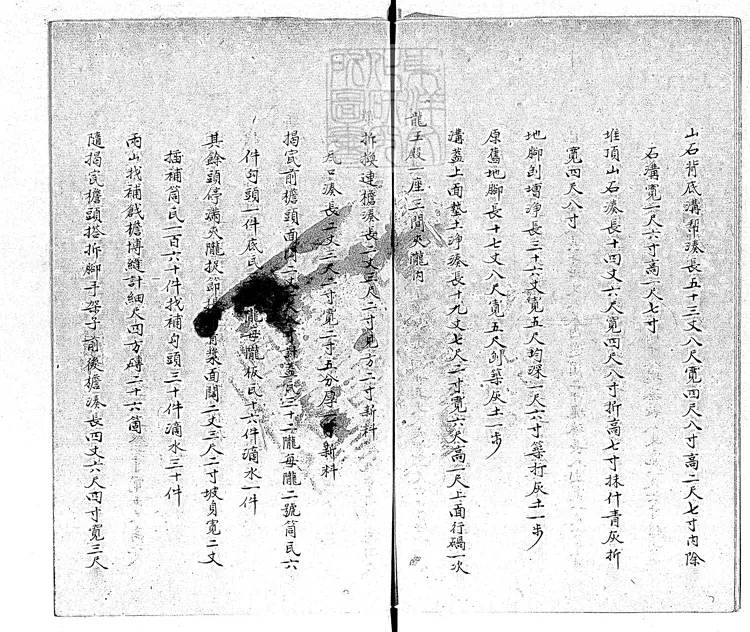 山石背底溝幫湊長五十三丈八尺寬四尺八寸高二尺七寸內除
石溝寬一尺六寸高一尺七寸
堆頂山石湊長十四丈六尺寬四尺八寸折高七寸抹什青灰折
寬四尺八寸
地腳刨壋淨長三十六丈寬五尺均深一尺六寸築打灰土一步
原舊地腳長十七丈八尺寬五尺卽築灰土一步
溝蓋上面墊土淨湊長十九丈七尺二寸寬六尺高一尺上面行硪一次
龍王殿一座三間夾隴內
拆換連檐湊長二丈三尺二寸見方二寸新料
瓦口湊長二丈三尺一寸寬二寸五分厚 寸新料
揭瓦前檐頭面闊二丈 蓋瓦三十二隴每隴二號筒瓦六
件勾頭一件底瓦 隴每隴板瓦十六件滴水一件
其餘頭停滿夾隴捉節 青漿面闊二丈三尺二寸坡身寬二丈
插補筒瓦一百六十件找補勾頭三十件滴水三十件
兩山找補戧檐博縫計細尺四方磚二十六個
隨揭瓦檐頭搭拆腳手架子前後檐湊長四丈六尺四寸寬三尺